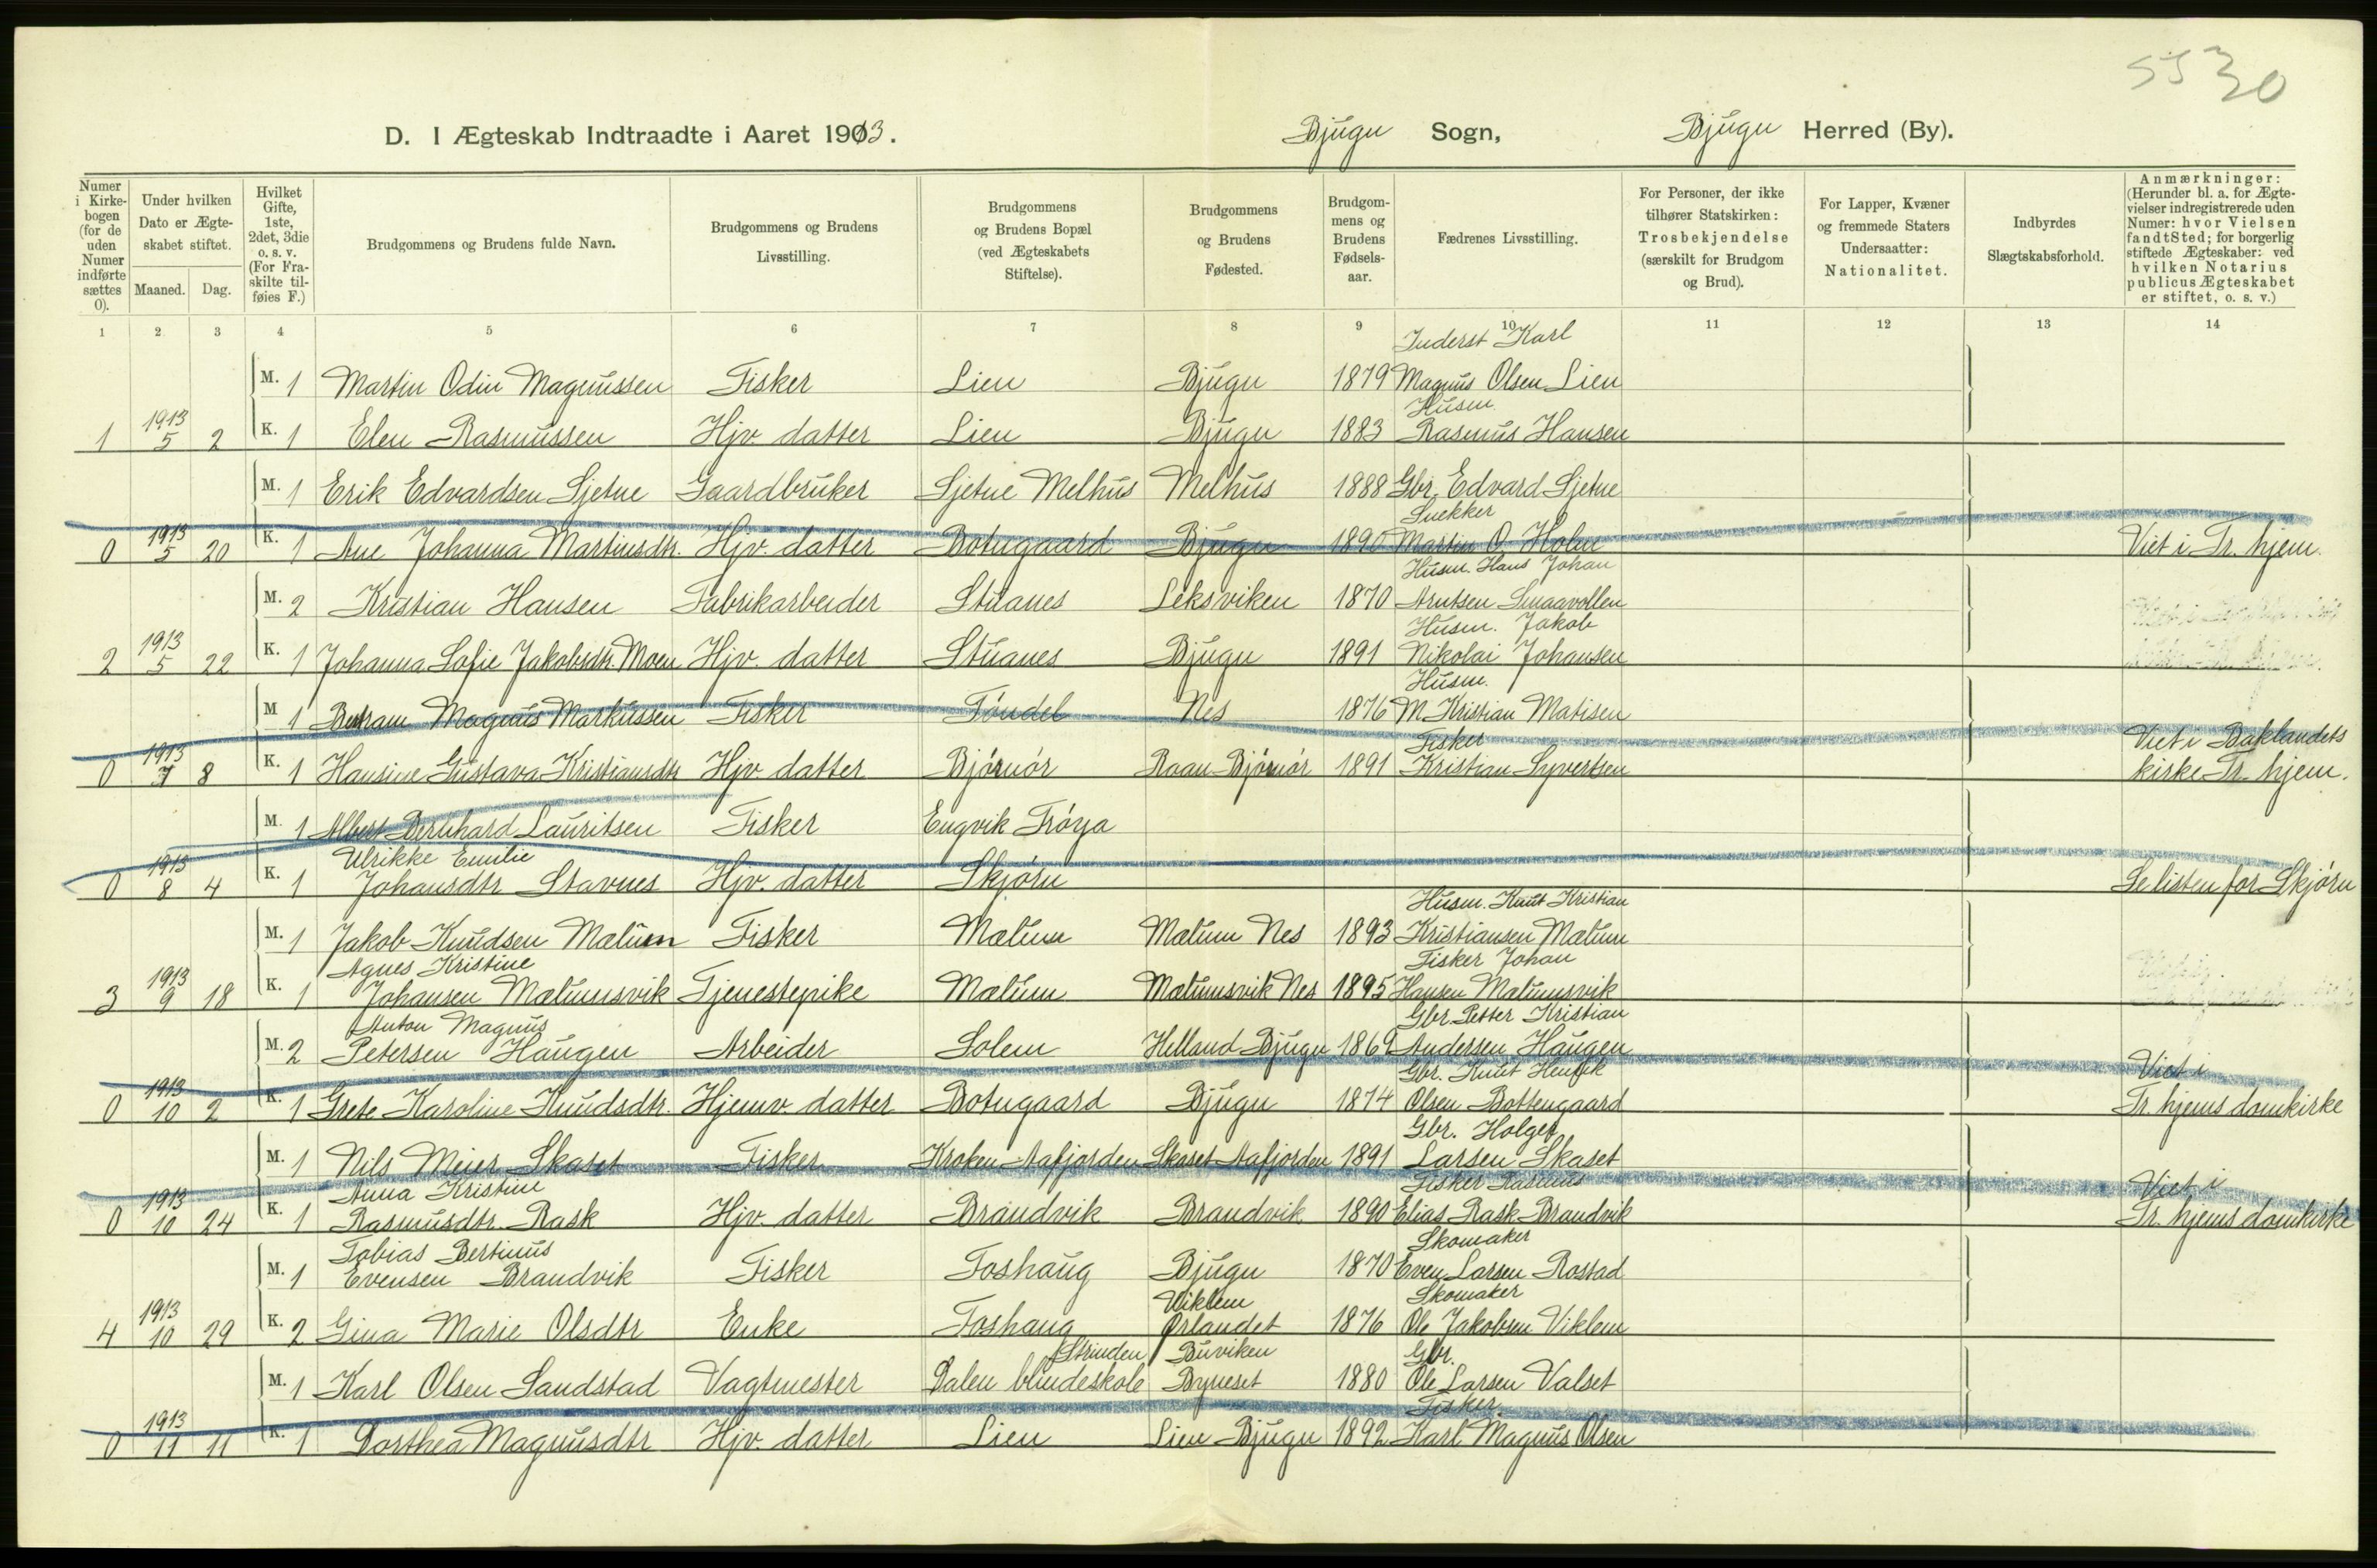 55 30
D. I Ægteskab Indtraadte i Aaret 1913. Bjugn Sogn, Bjugn Herred (By).
Numer i Kirkebogen (for de uden Numer indførte sættes 0).
Under hvilken Dato er Ægteskabet stiftet. Maaned. Dag.
Hvilket Gifte, 1ste, 2det, 3die o. s. v. (For Fraskilte tilføies F.)
Brudgommens og Brudens fulde Navn.
Brudgommens og Brudens Livsstilling.
Brudgommens og Brudens Bopæl (ved Ægteskabets Stiftelse).
Brudgommens og Brudens Fødested.
Brudgommens og Brudens Fødselsaar.
Fædrenes Livsstilling.
For Personer, der ikke tilhører Statskirken: Trosbekjendelse (særskilt for Brudgom og Brud).
For Lapper, Kvæner og fremmede Staters Undersaatter: Nationalitet.
Indbyrdes Slægtskabsforhold.
Anmærkninger: (Herunder bl. a. for Ægtevielser indregistrerede uden Numer: hvor Vielsen fandt Sted; for borgerlig stiftede Ægteskaber: ved hvilken Notarius publicus Ægteskabet er stiftet, o. s. v.)
1 2 3 4 5 6 7 8 9 10 11 12 13 14
M. 1 Martin Odin Magnussen Fisker Lien Bjugn 1879 Inderst Karl Magnus Olsen Lien
1 1913 5 2 K. 1 Elen Rasmussen Hjv. datter Lien Bjugn 1883 Husm. Rasmus Hansen
M. 1 Erik Edvardsen Ljetue Gaardbruker Ljetue Melhus Melhus 1888 Gbr. Edvard Ljetue
0 1913 5 20 K. 1 Ane Johanna Martinsdtr. Hjv. datter Botngaard Bjugn 1890 Snekker Martin O. Holm Viet i Tr. hjem.
M. 2 Kristian Hansen Fabrikarbeider Stuanes Leksviken 1870 Husm. Hans Johan Arntsen Smaavollen
2 1913 5 22 K. 1 Johanna Sofie Jakobsdtr. Moen Hjv. datter Stuanes Bjugn 1891 Husm. Jakob Nikolai Johansen
M 1 Magnus Markussen Fisker Tøndel Nes 1876 Husm. M. Kristian Matisen
0 1913 7 8 K. 1 Hansine Gustava Kristiansdtr Hjv. datter Bjørnør Raan Bjørnør 1891 Fisker Kristian Syvertsen Viet i Baklandets kirke Tr. hjem.
M. 1 Albert Bernhard Lauritsen Fisker Engvik Frøya
0 1913 8 4 K. 1 Ulrikke Emilie Johansdtr Stavnes Hjv. datter Skjørn Se listen for Skjørn
M. 1 Jakob Knudsen Mælum Fisker Mælum Mælum Nes 1893 Husm. Knut Kristian Kristiansen Mælum
3 1913 9 18 K. 1 Agnes Kristine Johansen Mælumsvik Tjenestepike Mælum Mælumsvik Nes 1895 Fisker Johan Hansen Mælumsvik
M. 2 Anton Magnus Petersen Haugen Arbeider Solem Helland Bjugn 1869 Gbr. Petter Kristian Andersen Haugen
0 1913 10 2 K. 1 Grete Karoline Knudsdtr. Hjemv. datter Botngaard Bjugn 1874 Gbr. Knut Henrik Olsen Bottengaard Viet i Tr. hjems domkirke
M. 1 Nils Meier Skaset Fisker Kroken Aafjorden Skaset Aafjorden 1891 Gbr. Holger Larsen Skaset
0 1913 10 24 K. 1 Anna Kristine Rasmusdtr. Rask Hjv. datter Brandvik Brandvik 1890 Fisker Rasmus Elias Rask Brandvik Viet i Tr. hjems domkirke
M. 1 Tobias Bertinus Evensen Brandvik Fisker Foshaug Bjugn 1870 Skomaker Even Larsen Rostad
4 1913 10 29 K. 2 Gina Marie Olsdtr Enke Foshaug Viklem Ørlandet 1876 Skomaker Ole Jakobsen Viklem
M. 1 Karl Olsen Sandstad Vagtmester Dalen blindeskole Strinden Buviken Byneset 1880 Gbr. Ole Larsen Valset
0 1913 11 11 K. 1 Dorthea Magnusdtr Hjv. datter Lien Lien Bjugn 1892 Fisker. Karl Magnus Olsen